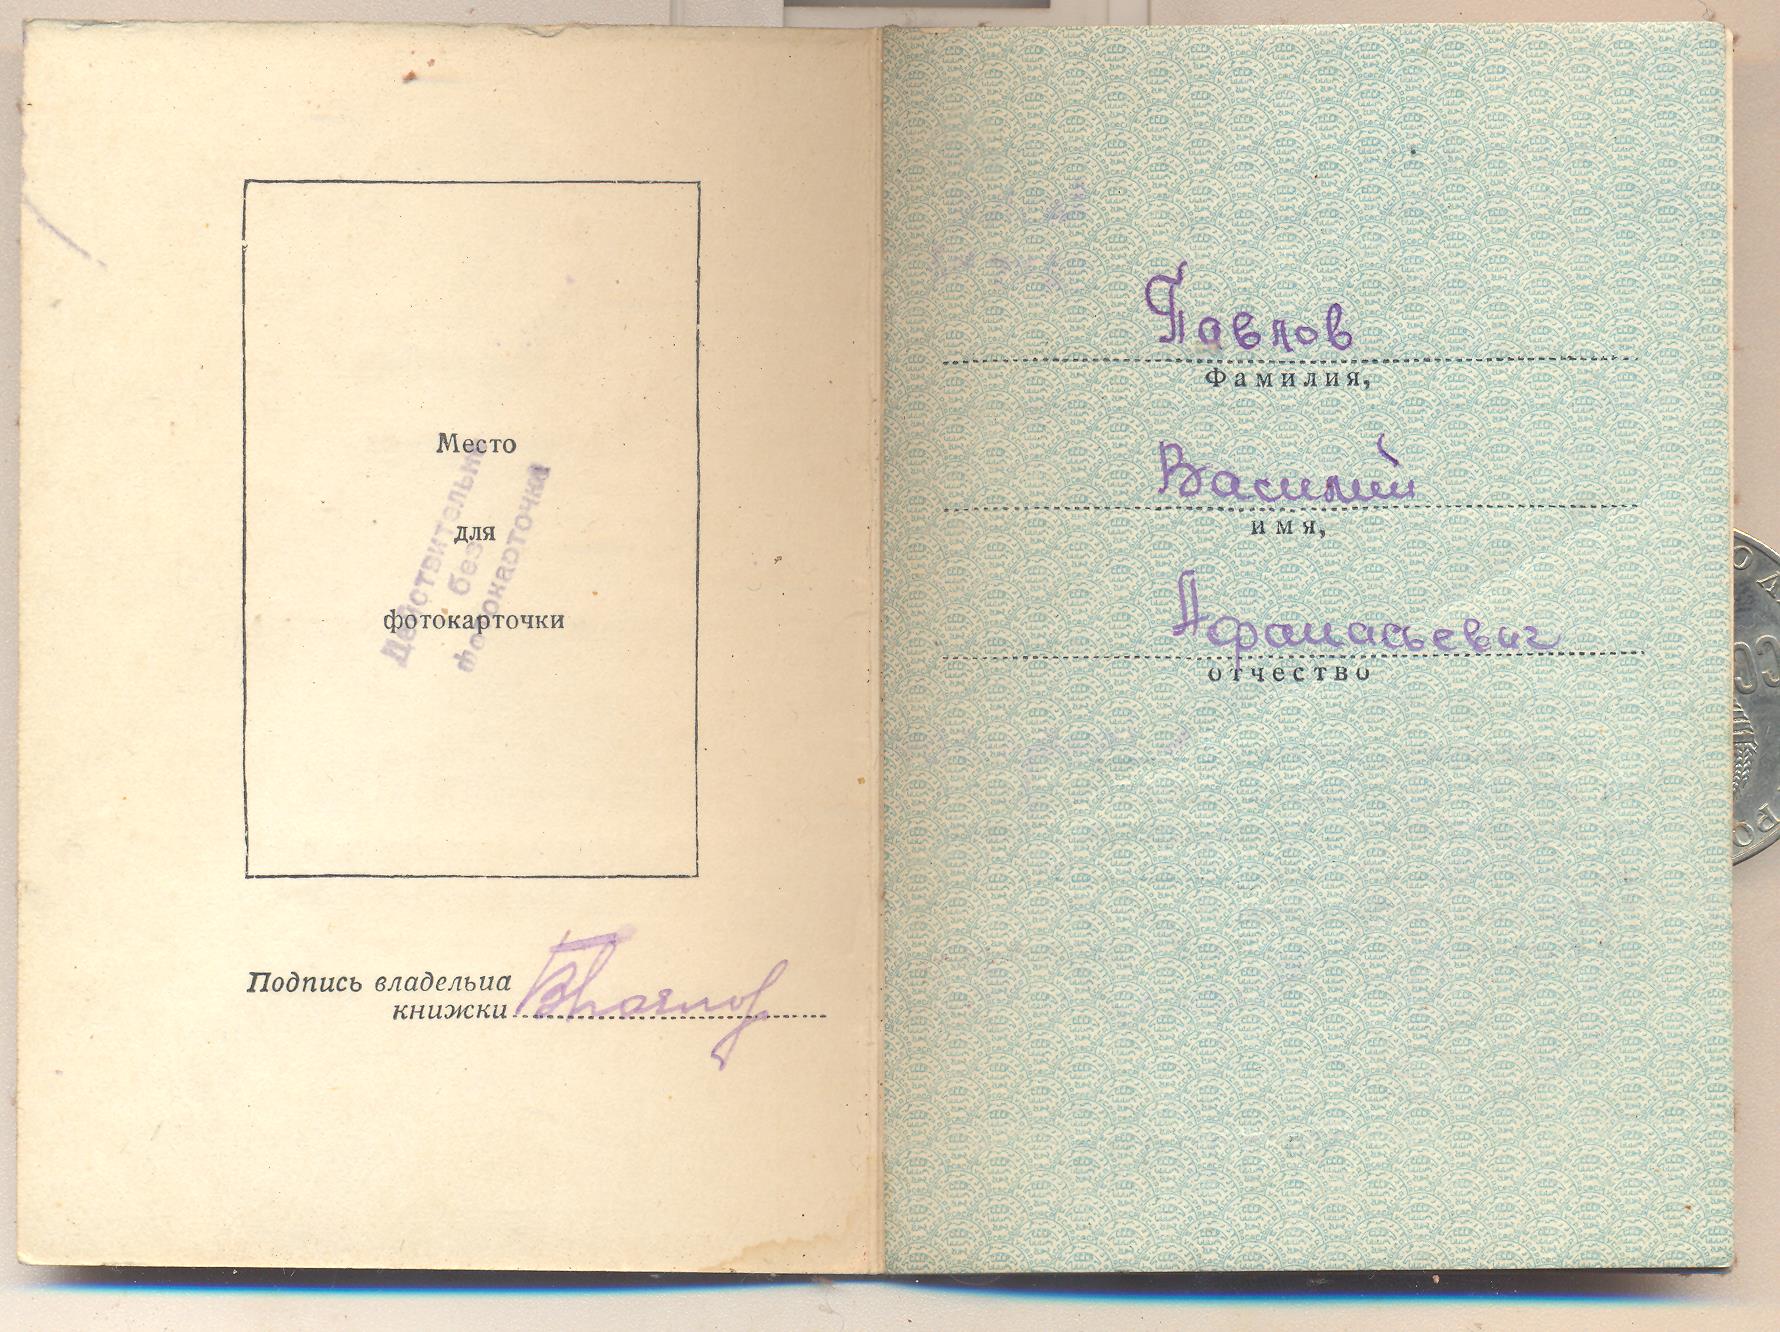 Место
для
фотокарточки
Действительно
без
фотокарточки
Подпись владельца
книжки
Павлов
Фамилия,
Василий
имя,
Афанасьевич
отчество